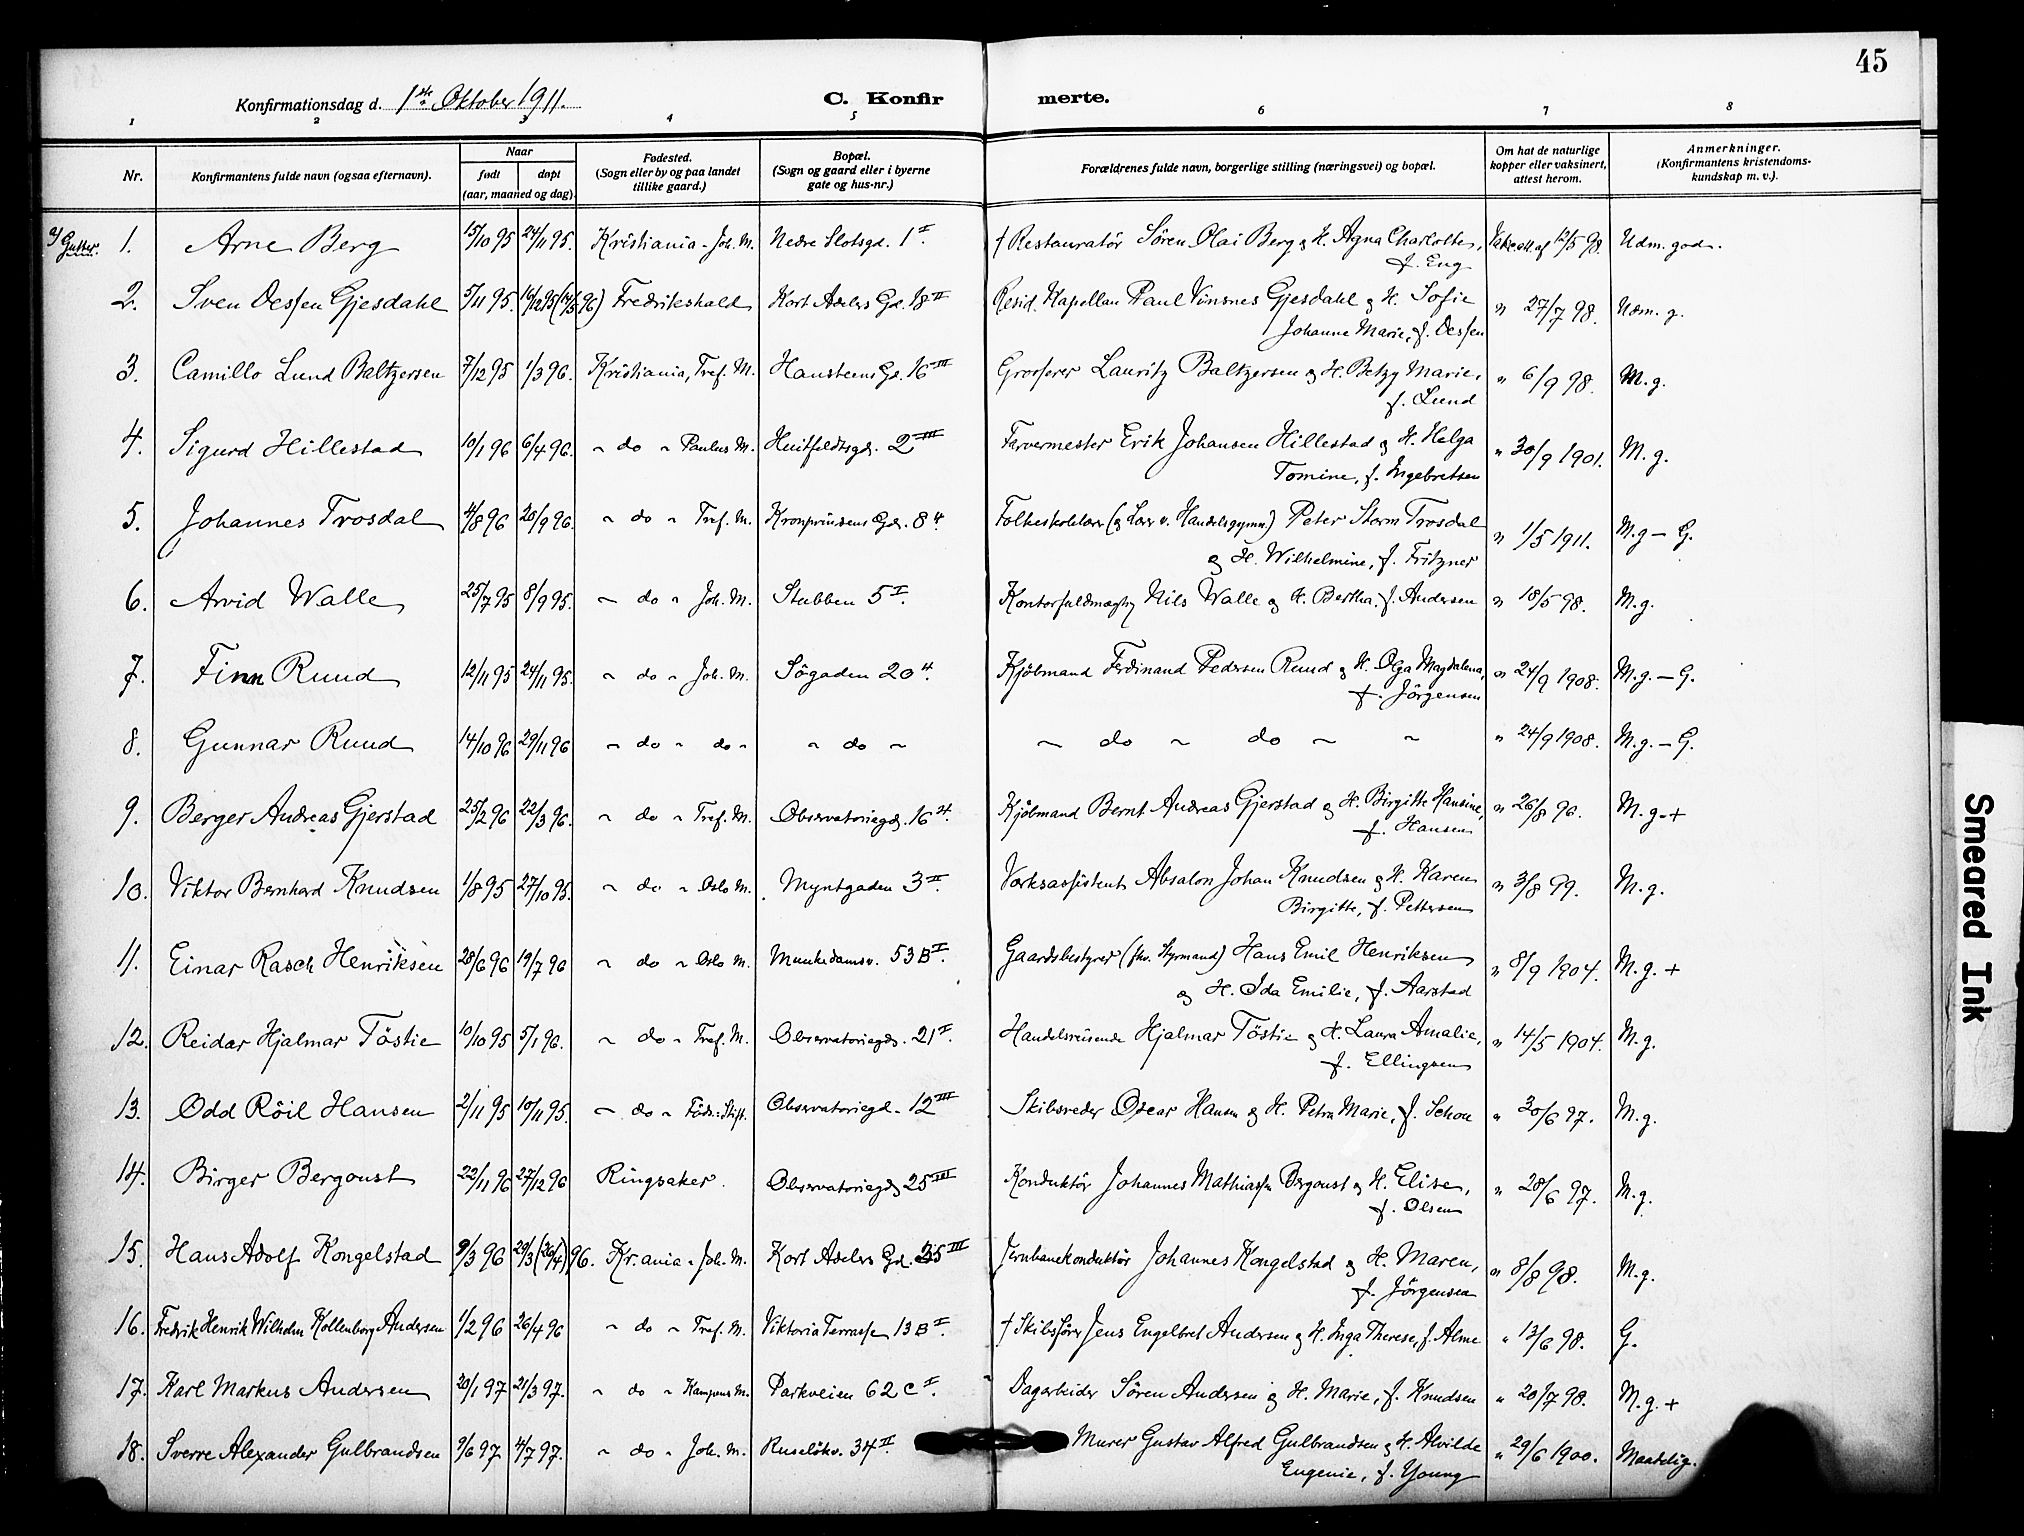 45
Konfirmationsdag d. 1ste Oktober 1911.
C. Konfir merte.
1 2 3 4 5 6 7 8
Nr. Konfirmantens fulde navn (ogsaa efternavn). Naar født døpt (aar, maaned og dag). Fødested. (Sogn eller by og paa landet tillike gaard.) Bopæl. (Sogn og gaard eller i byerne gate og hus-nr.) Forældrenes fulde navn, borgerlige stilling (næringsvei) og bopæl. Om hat de naturlige kopper eller vaksinert, attest herom. Anmerkninger. (Konfirmantens kristendoms-kundskap m. v.).
a/ Gutter.
1. Arne Berg 15/10 95 24/11 95. Kristiania - Joh. M. Nedre Slotsgd. 1 I. † Restauratör Sören Olai Berg & H. Agna Charlotte, Vakc. att. af 12/5 98. Udm. god.
f. Eng
2. Sven Dessen Gjesdahl 5/11 95. 16/12 95 (14/5 96) Fredrikshald Kort Adelers Gd. 18 II Resid. Kapellan Paul Vinsnes Gjesdahl & H. Sofie " 27/7 98. Udm. g.
Johanne Marie, f. Dessen
3. Camillo Lund Baltzersen 7/12 95 1/3 96. Kristiania, Tref. M. Hansteens Gd. 16 III Grosserer Lauritz Baltzersen & H. Betzy Marie, " 6/9 98. M. g.
f. Lund
4. Sigurd Hillestad 10/1 96 6/4 96. - do - Paulus M. Huitfeldtsgd. 2 III Farvermester Erik Johansen Hillestad & H. Helga " 30/9 1901. M. g.
Tomine, f. Ingebretsen
5. Johannes Trosdal 4/8 96 20/9 96. - do - Tref. M. Kronprindsens Gd. 8 4. Folkeskolelærer (& Lærer v. Handelsgymn.) Peter Storm Trosdal " 1/5 1911. M. g - G.
& H. Wilhelmine, f. Fritzner
6. Arvid Walle 25/7 95 8/9 95. - do - Joh. M. Stubben 5 I. Kontorfuldmægtig Nils Walle & H. Bertha, f. Andersen " 18/5 98. M. g.
7. Finn Ruud 12/11 95 24/11 95. - do - Joh. M. Sögaden 20 4. Kjöbmand Ferdinand Pedersen Ruud & H. Olga Magdalena, " 24/9 1908. M. g. - G.
f. Jörgensen
8. Gunnar Ruud 14/10 96 29/11 96 - do - do - - do - - do - do - - " 24/9 1908. M. g. - G.
9. Berger Andreas Gjerstad 25/2 96 22/3 96. - do - Tref. M. Observatoriegd. 16 4. Kjöbmand Bernt Andreas Gjerstad & H. Birgitte Hansine, " 26/8 96. M. g. +
f. Hansen
10. Viktor Bernhard Knudsen 1/8 95 27/10 95. - do - Oslo M. Myntgaden 3 II. Værksassistent Absalon Johan Knudsen & H. Karen " 3/8 99. M. g.
Birgitte, f. Pettersen
11. Einar Rasch Henriksen 28/6 96 19/7 96 - do - Oslo M. Munkedamsv. 53 B I. Gaardsbestyrer (fhv. Styrmand) Hans Emil Henriksen " 8/9 1904. M. g. +
& H. Ida Emilie, f. Aarstad
12. Reidar Hjalmar Töstie 10/10 95 5/1 96. - do - Tref. M. Observatoriegd. 21 I. Handelsreisende Hjalmar Töstie & H. Laura Amalie, " 14/5 1904. M. g.
f. Ellingsen
13. Odd Röil Hansen 2/11 95 10/11 95. - do - Föds: Stift. Observatoriegd. 12 III Skibsreder Oscar Hansen & H. Petra Marie, f. Schou " 30/6 97. M. g.
14. Birger Bergoust 22/11 96 27/12 96 Ringsaker. Observatoriegd. 25 III Konduktör Johannes Mathiassen Bergoust & H. Elise, " 28/6 97. M. g.
f. Olsen
15. Hans Adolf Kongelstad 9/3 96 29/3 (26/4) 96. Kr.ania - Joh. M. Kort Adelers Gd. 35 III Jernbanekonduktör Johannes Kongelstad & H. Maren, " 8/8 98. M. g.
f. Jörgensen
16. Fredrik Henrik Wilhelm Kollenborg Andersen 1/2 96 26/4 96 - do - Tref. M. Viktoria Terrasse 13 B I. † Skibsförer Jens Engelbret Andersen & H. Inga Therese, f. Alme " 13/6 98. G.
17. Karl Markus Andersen 20/1 97 21/3 97. - do - Kampens M. Parkveien 62 c I. Dagarbeider Sören Andersen & H. Marie, f. Knudsen " 20/7 98. M. g. +
18. Sverre Alexander Gulbrandsen 9/6 97 4/7 97. - do - Joh. M. Ruselökv. 34 II. Murer Gustav Alfred Gulbrandsen & H. Alvilde " 29/6 1900. Maadelig.
Eugenie, f. Young
Smeared Ink